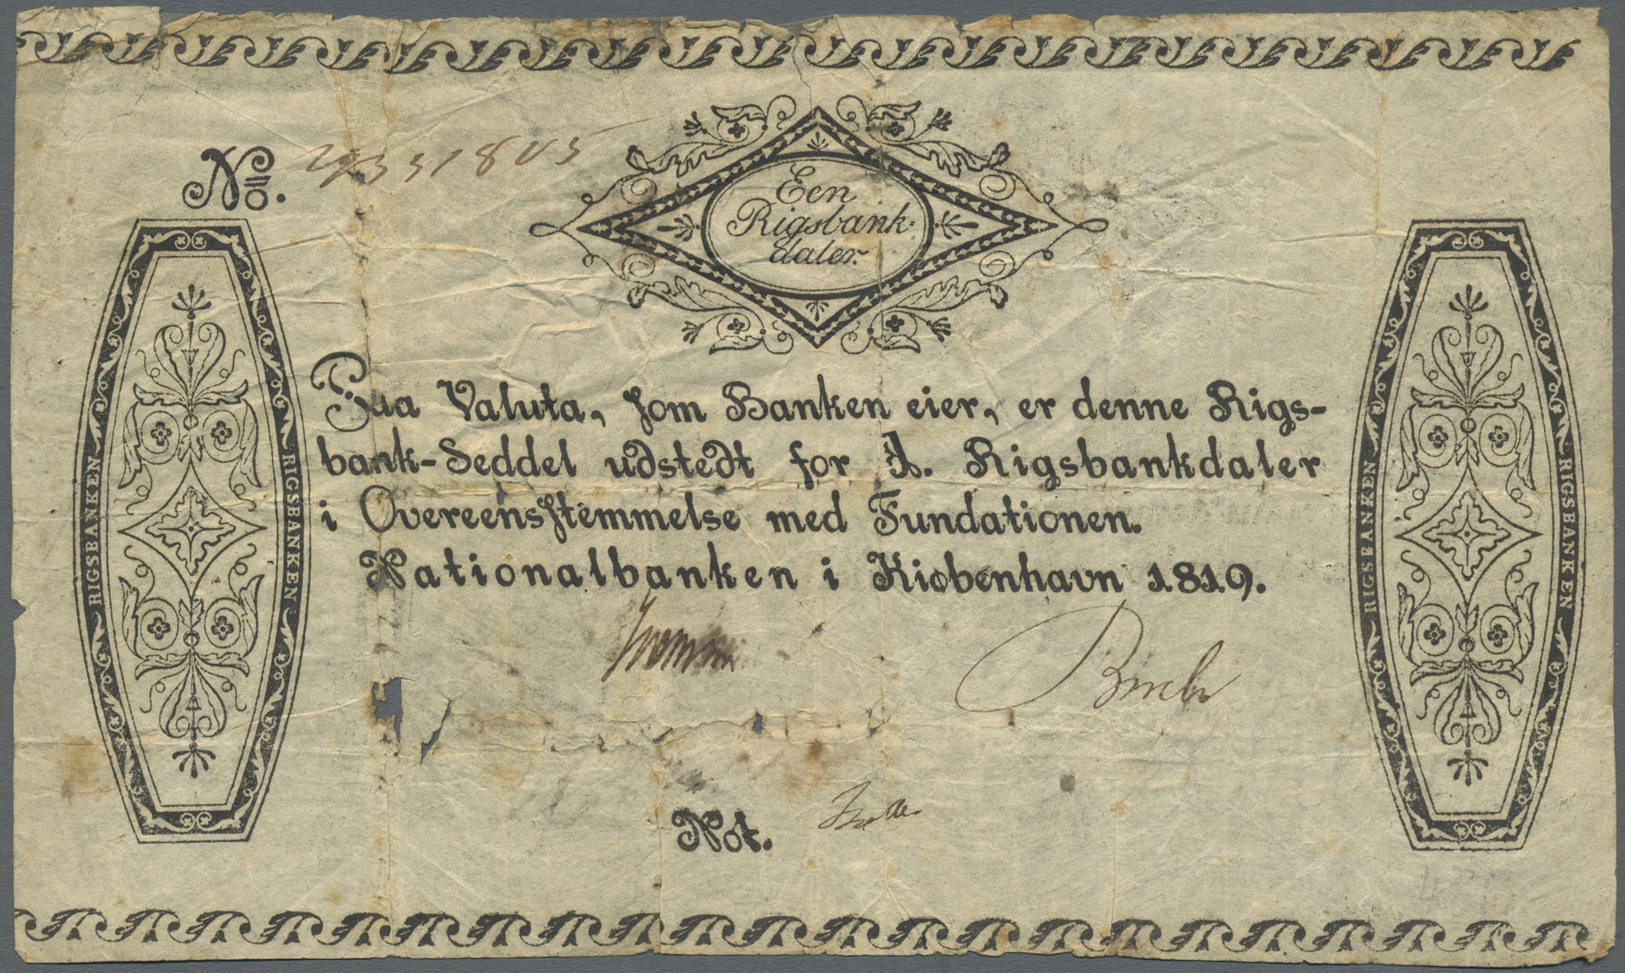 No.
Een
Rigsbank-
daler.
Paa Valuta, som Banken eier, er denne Rigs-
bank-Seddel udstedt for 1. Rigsbankdaler
i Overeensstemmelse med Fundationen.
Nationalbanken i Kiøbenhavn 1819.
Not.
RIGSBANKEN
RIGSBANKEN
RIGSBANKEN
RIGSBANKEN